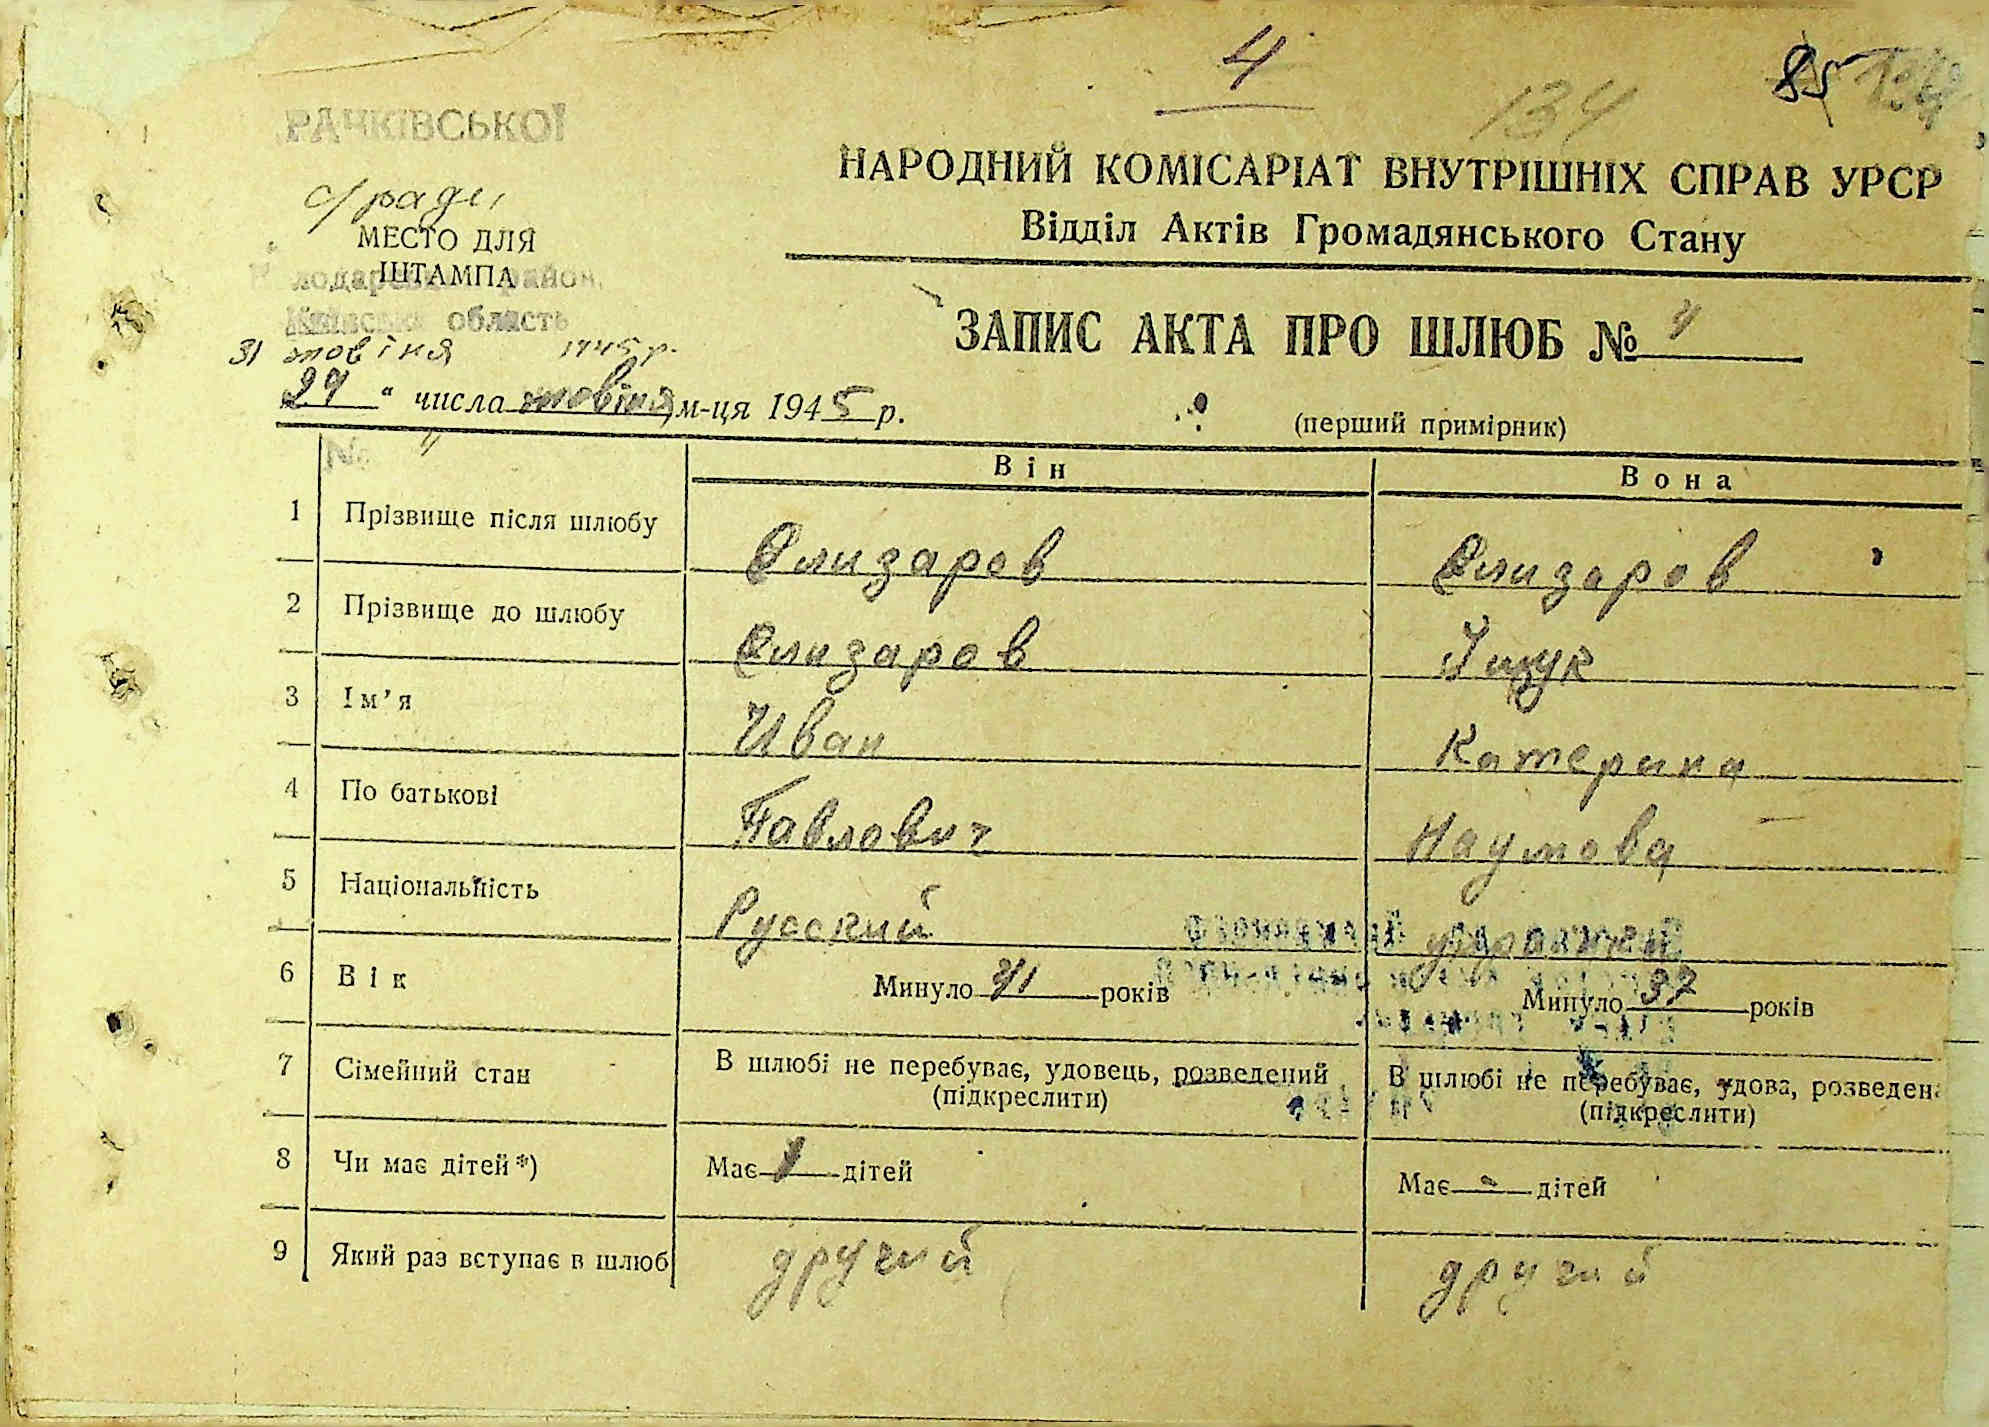 4
85
134
РАЧКІВСЬКОЇ
с/ради
НАРОДНИЙ КОМІСАРІАТ ВНУТРІШНІХ СПРАВ УРСР
Відділ Актів Громадянського Стану
МЕСТО ДЛЯ
ШТАМПА
район
Київська область
31 жовтня 1945 р.
ЗАПИС АКТА ПРО ШЛЮБ № 4
" числа жовтня м-ця 1945 р.
(перший примірник)
№ 4
Він Вона
1 Прізвище після шлюбу Єлизаров Єлизаров
2 Прізвище до шлюбу Єлизаров Іщук
3 Ім'я Иван Катерина
4 По батькові Павлович Наумова
5 Національність Русский
6 Вік Минуло років Минуло 37 років
7 Сімейний стан В шлюбі не перебуває, удовець, розведений В шлюбі не перебуває, удова, розведена
(підкреслити) (підкреслити)
8 Чи має дітей*) Має 1 дітей Має - дітей
9 Який раз вступає в шлюб другий другий